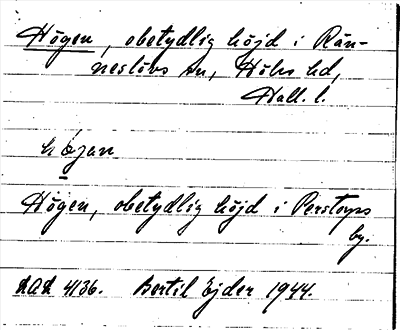 Högen, obetydlig höjd i Rän-
neslövs sn, Höks hd,
Hall. l.
högan
Högen, obetydlig höjd i Perstorps
by.
LAL 4136. Bertil Ejder 1944.